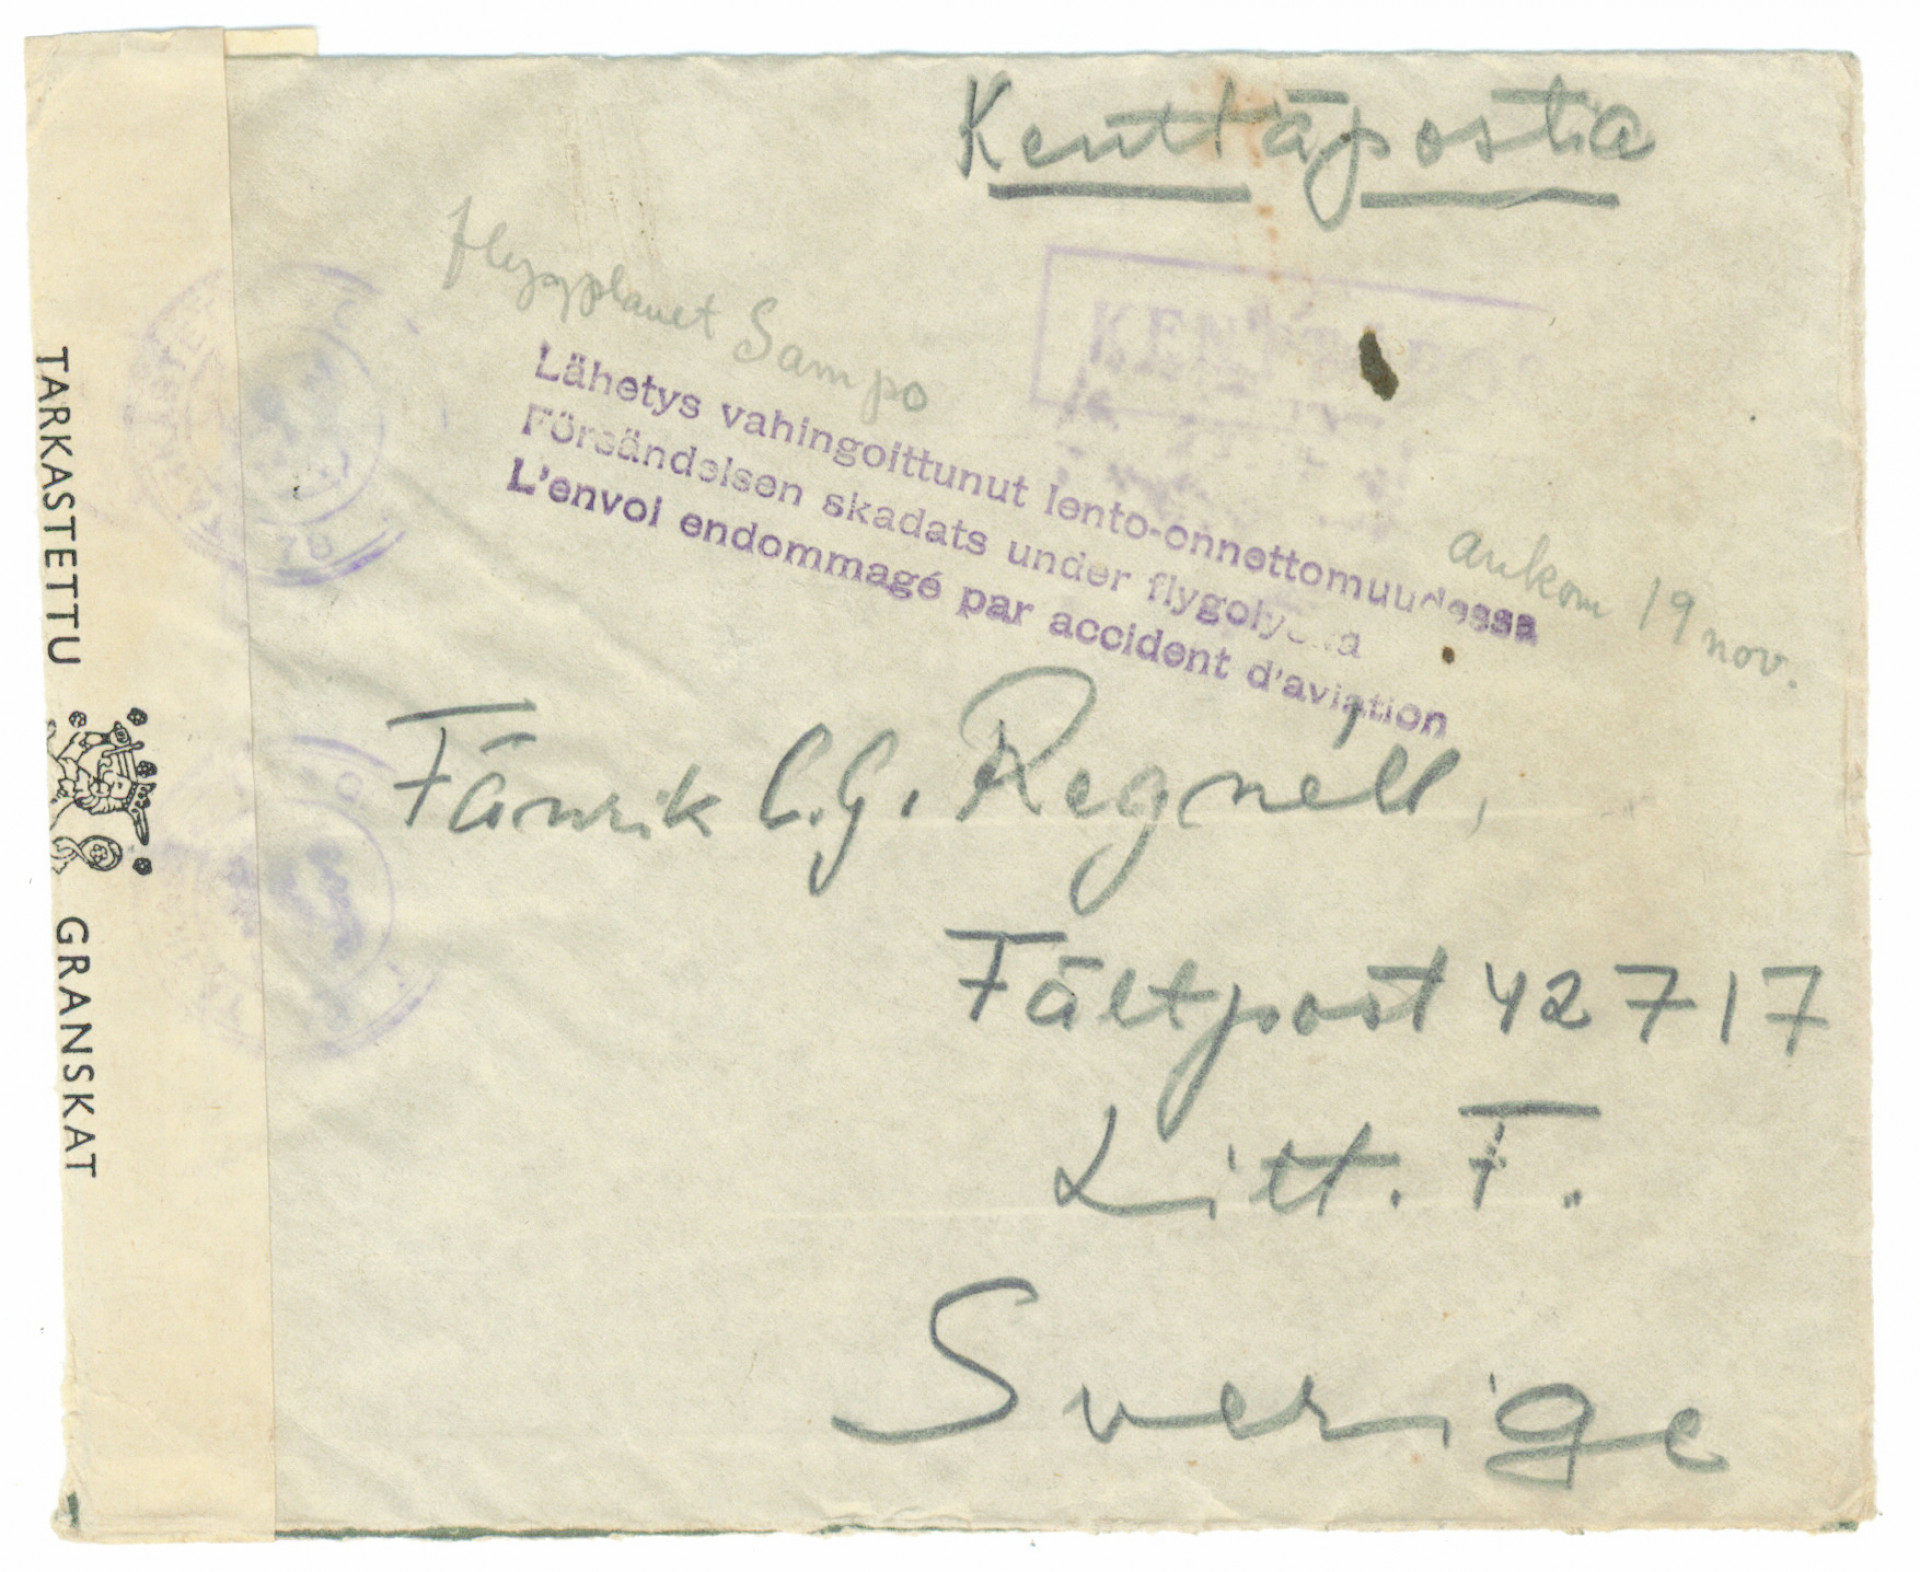 Kenttäpostia
flygplanet Sampo
Lähetys vahingoittunut lento-onnettomuudessa
Försändelsen skadats under flygolycka
L'envoi endommagé par accident d'aviation
ankom 19 nov.
Fänrik C.G. Regnéll,
Fältpost 42717
Litt. F.
Sverige
TARKASTETTU GRANSKAT